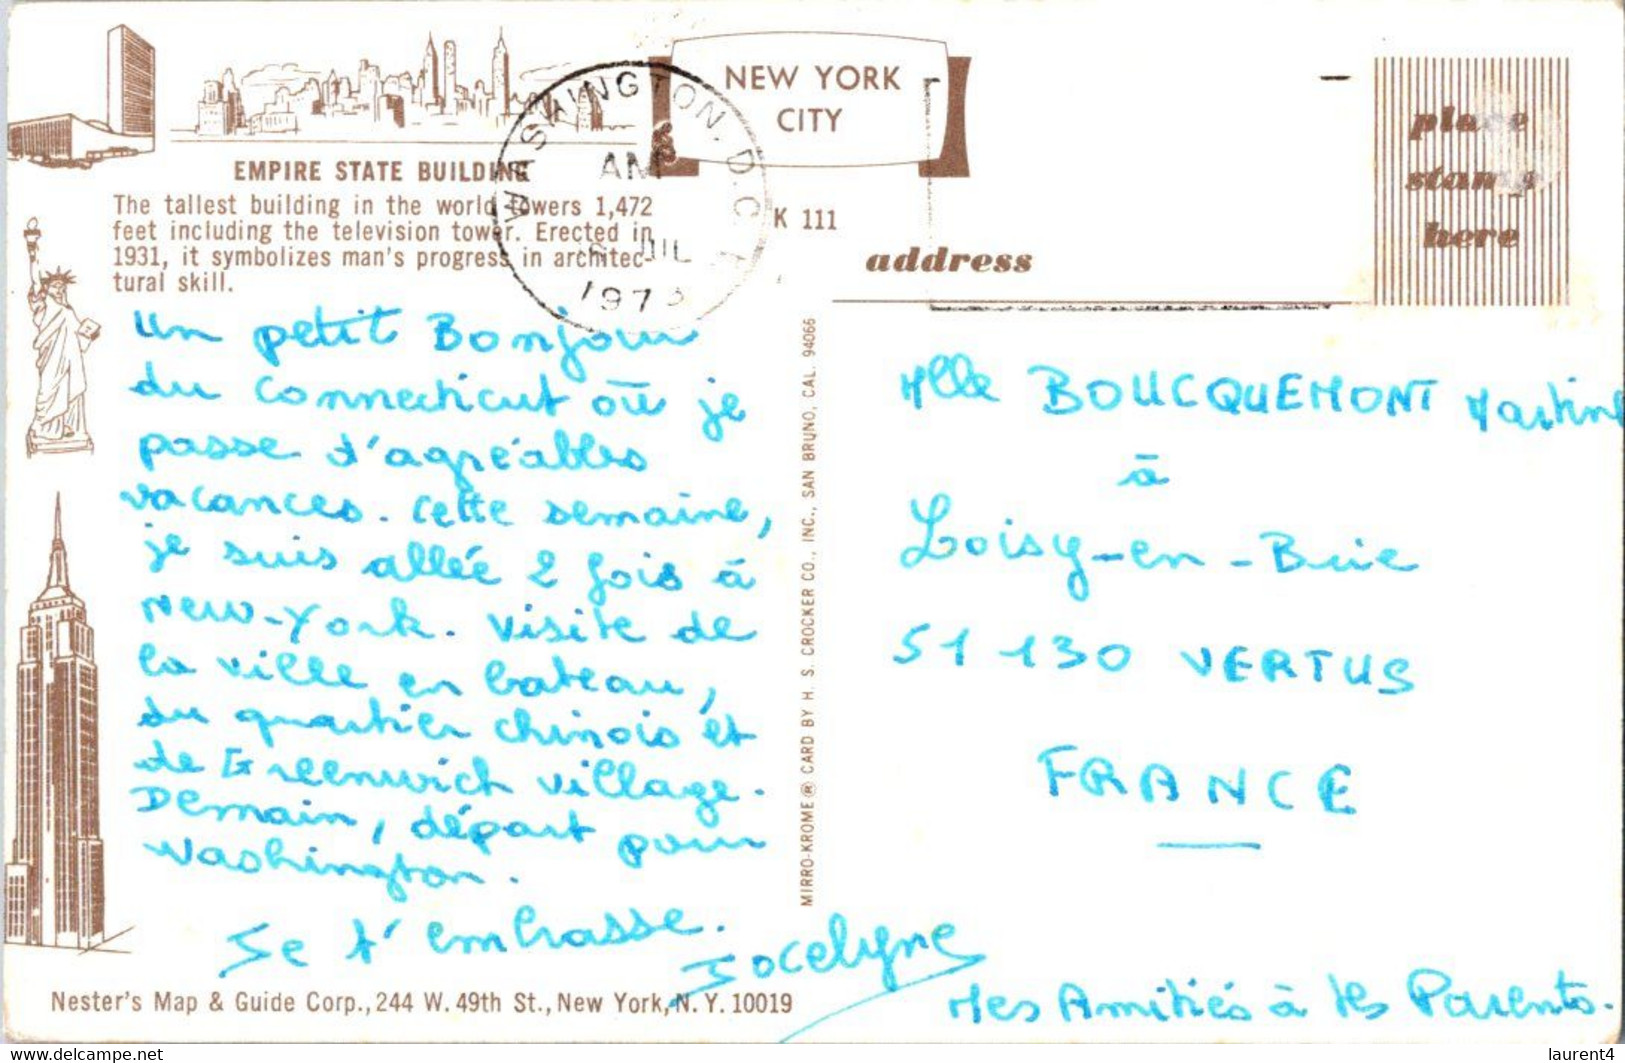 NEW YORK
CITY
WASHINGTON, D.C.
AM
JUL
197
place
stamp
here
EMPIRE STATE BUILDING
The tallest building in the world towers 1,472
feet including the television tower. Erected in
1931, it symbolizes man's progress in architec-
tural skill.
K 111
address
Un petit Bonjour
du Connecticut où je
passe d'agréables
vacances. Cette semaine,
je suis allée 2 fois à
New-York. Visite de
la ville en bateau,
du quartier chinois et
de Greenwich Village.
Demain, départ pour
Washington.
Je t'embrasse.
Jocelyne
MIRRO-KROME® CARD BY H. S. CROCKER CO., INC., SAN BRUNO, CAL. 94066
Mlle BOUCQUEMONT Martine
à
Loisy-en-Brie
51 130 VERTUS
FRANCE
Mes Amitiés à tes Parents.
Nester's Map & Guide Corp., 244 W. 49th St., New York, N. Y. 10019
www.delcampe.net
laurent4